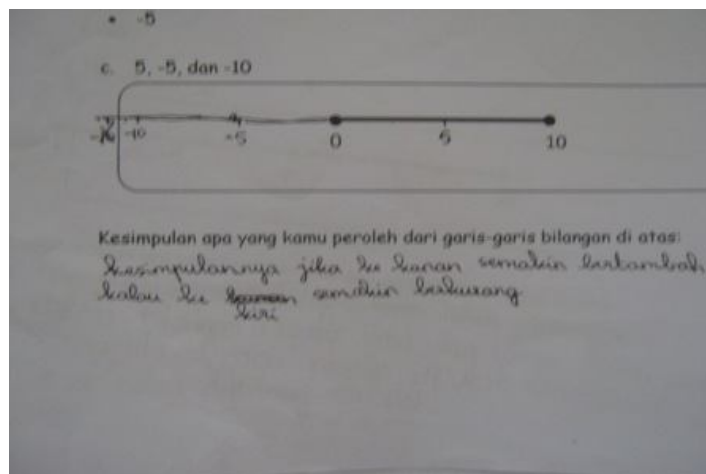 • -5
c. 5, -5, dan -10
-10 -5 0 5 10
Kesimpulan apa yang kamu peroleh dari garis-garis bilangan di atas:
kesimpulannya jika ke kanan semakin bertambah
kalau ke semakin berkurang
kiri